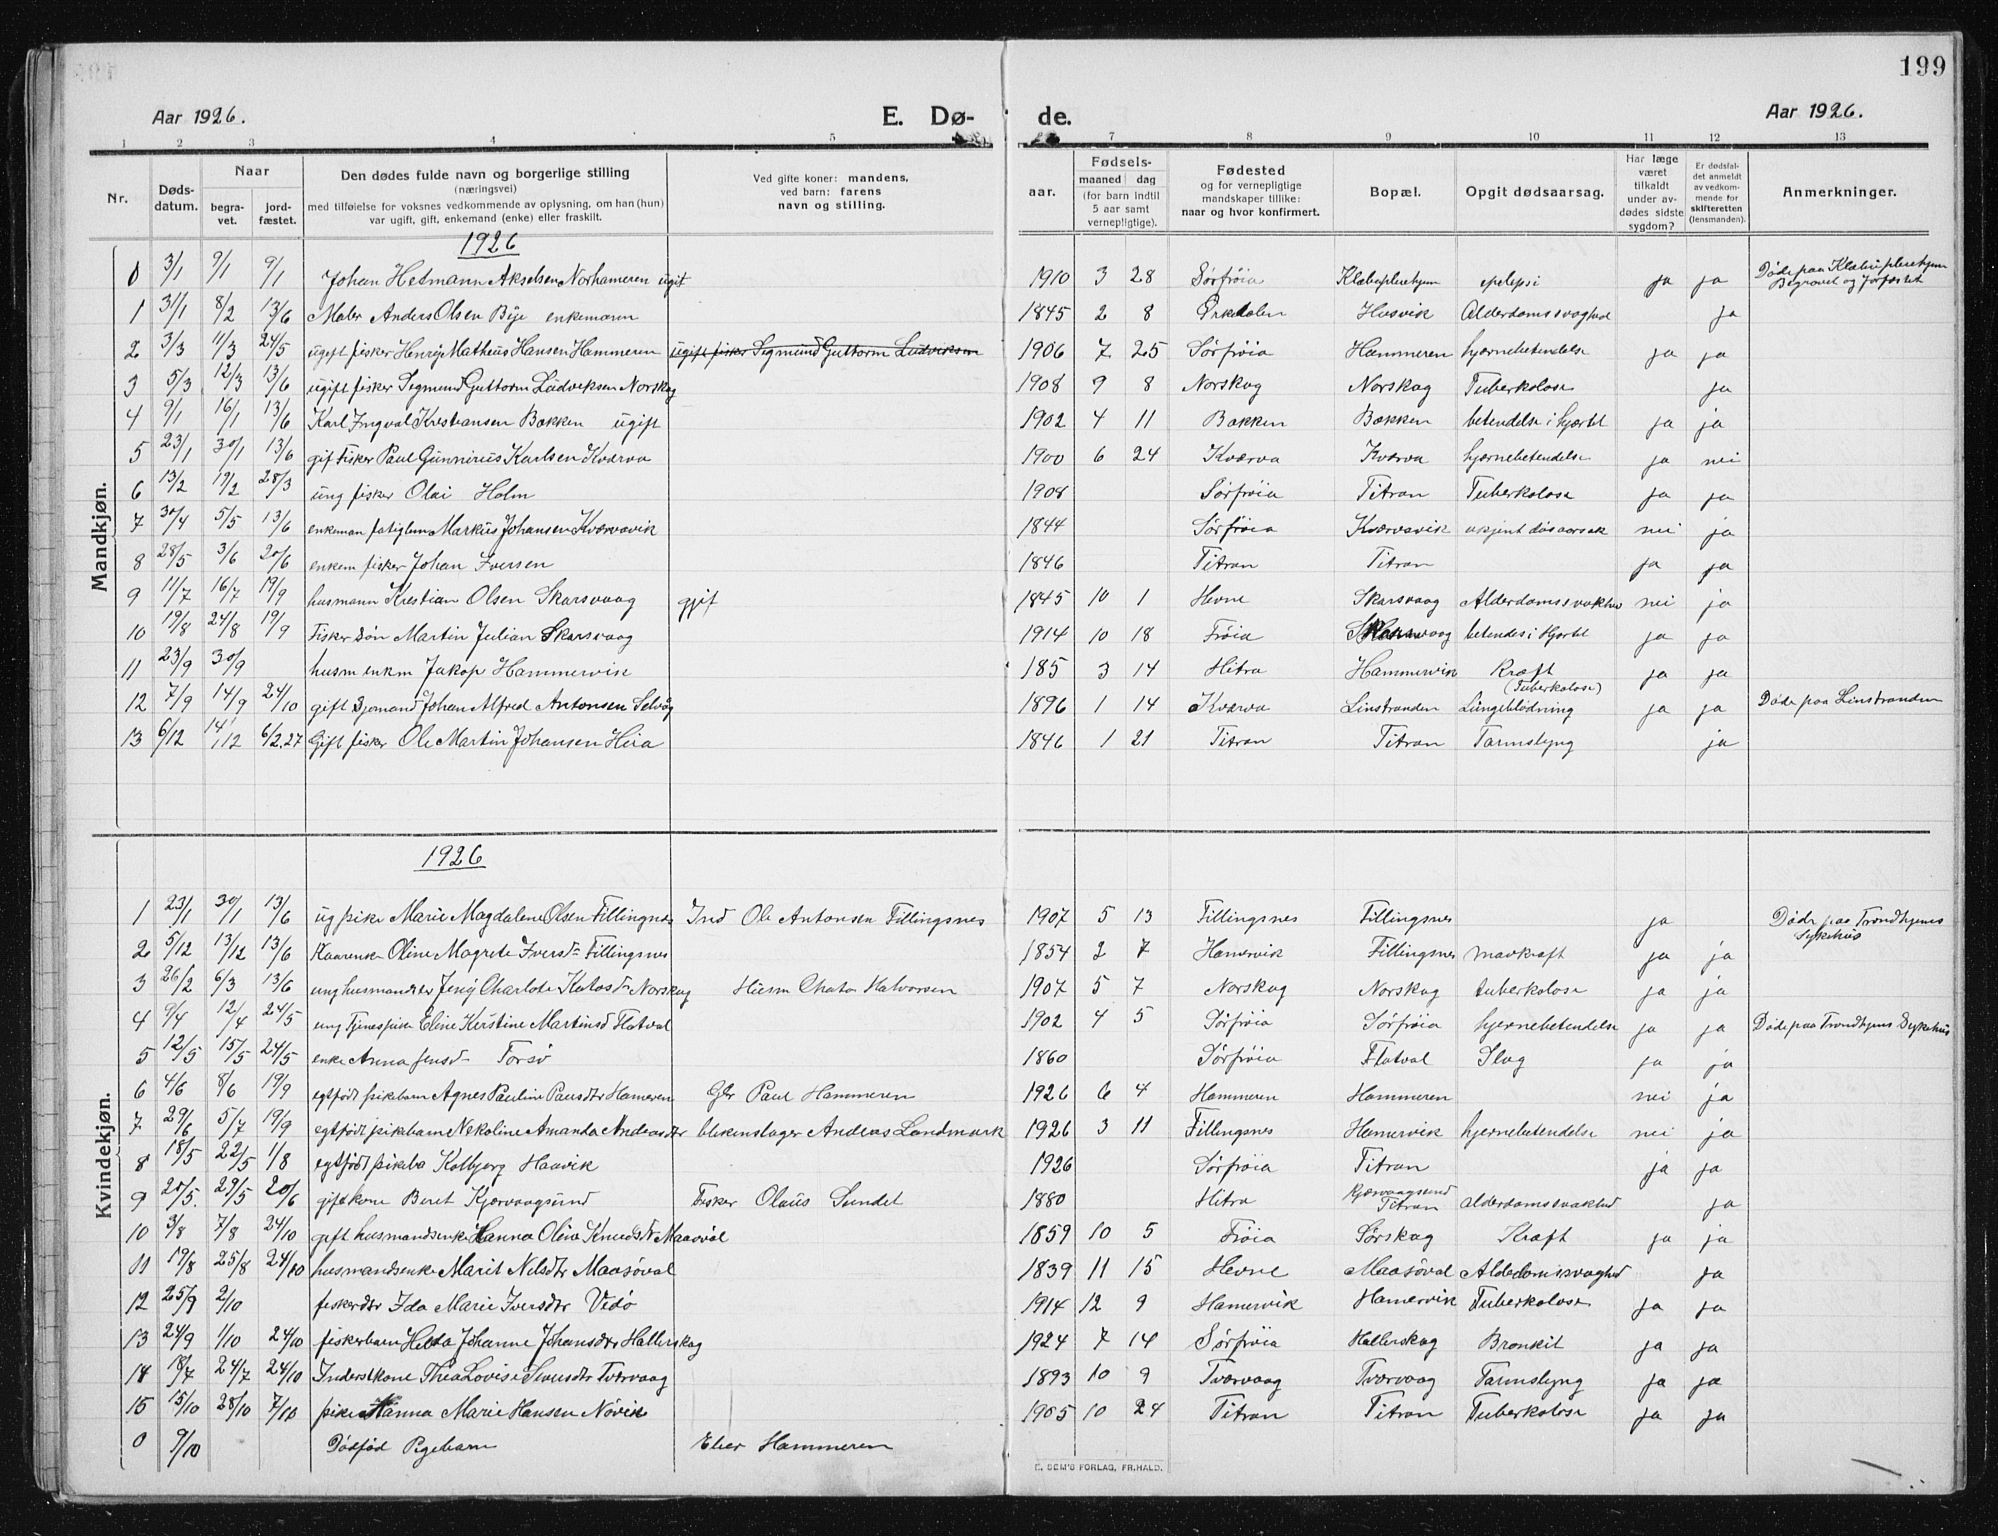 199
Aar 1926. E. Dø- de. Aar 1926.
1 2 3 4 5 7 8 9 10 11 12 13
Nr. Døds-datum. Naar begra-vet. jord-fæstet. Den dødes fulde navn og borgerlige stilling (næringsvei) med tilføielse for voksnes vedkommende av oplysning, om han (hun) var ugift, gift, enkemand (enke) eller fraskilt. Ved gifte koner: mandens, ved barn: farens navn og stilling. aar. Fødsels- maaned dag (for barn indtil 5 aar samt vernepligtige). Fødested og for vernepligtige mandskaper tillike: naar og hvor konfirmert. Bopæl. Opgit dødsaarsag. Har læge været tilkaldt under av-dødes sidste sygdom? Er dødsfal-det anmeldt av vedkom-mende for skifteretten (lensmanden). Anmerkninger.
Mandkjøn.
1926
0 3/1 9/1 9/1 Johan Hetmann Akselsen Norhameren ugift 1910 3 28 Sørfrøia Klæbuplerehjem epelepsi ja ja Døde paa Klæbu plerehjem Begravet og Jorfæstet
1 31/1 8/2 13/6 Maler Anders Olsen Bye enkemann 1845 2 8 Ørkedalen Husvik Alderdomssvaghed ja
2 3/3 11/3 24/5 ugift fisker Henry Matheus Hansen Hammeren ugift fisker Segmund Guttorm Ludviksen 1906 7 25 Sørfrøia Hammeren hjernebetendelse ja ja
3 5/3 12/3 13/6 ugift fisker Segmund Guttorm Ludviksen Norskag 1908 9 8 Norskag Norskag Tuberkolose ja
4 9/1 16/1 13/6 Karl Ingval Krestiansen Bakken ugift 1902 4 11 Bakken Bakken betendelse i hjærtet ja ja
5 23/1 30/1 13/6 gif Fisker Paul Gunnerius Karlsen Kværva 1900 6 24 Kværva Kværva hjernebetendelse ja nei
6 13/2 19/2 28/3 ung fisker Olai Holm 1908 Sørfrøia Titran Tuberkolose ja ja
7 30/4 5/5 13/6 enkeman fatiglem Markus Johansen Kværvavik 1844 Sørfrøia Kværvavik ukjent døsaarsak nei ja
8 28/5 3/6 20/6 enkem fisker Johan Iversen 1846 Titran Titran ja ja
9 11/7 16/7 19/9 husmann Krestian Olsen Skarsvaag gjift 1845 10 1 Hevne Skarsvaag Alderdomssvakhed nei ja
10 19/8 24/8 19/9 Fisker søn Martin Julian Skarsvaag 1914 10 18 Frøia Skarsvaag betendes i Hjertet ja ja
11 23/9 30/9 husm enkm Jakop Hammervik 185 3 14 Hitra Hammervik Kræft ja ja
12 7/9 14/9 24/10 gift Sjømand Johan Alfred Antonsen Selvåg 1896 1 14 Kværva Linstranden (Tuberkolose) Lungeblødning ja ja Døde paa Linstranden
13 6/12 14/12 6/2.27 Gift fisker Ole Martin Johansen Heia 1846 1 21 Titran Titran Tarmslyng ja
Kvindekjøn.
1926
1 23/1 30/1 13/6 ug pike Marie Magdalene Olsen Fillingnes Ind Ole Antonsen Fillingsnes 1907 5 13 Fillingsnes Fillingsnes ja Døde paa Trondhjems Sykehus
2 5/12 13/12 13/6 Kaarenke Oline Magrete Iversd Fillingsnes 1854 2 7 Hamervik Fillingsnes mavkræft ja ja
3 26/2 6/3 13/6 ung husmandster Jeny Charlote Katosd Norskag Husm Chato Halvorsen 1907 5 7 Norskag Norskag tuberkolose ja ja
4 9/4 12/4 24/5 ung Tjenespike Eline Kerstine Martinsd Flatval 1902 4 5 Sørfrøia Sørfrøia hjernebetendelse ja ja Døde paa Trondhjems Sykehus
5 12/5 15/5 24/5 enke Anna Jensd Torsø 1860 Sørfrøia Flatval Slag ja ja
6 4/6 8/6 19/9 egtfødt pikebarn Agnes Pauline Pausdtr Hameren Gbr Paul Hammeren 1926 6 4 Hammeren Hammeren nei ja
7 29/6 5/7 19/9 egtfødt pikebarn Nekoline Amanda Andreasdtr blekenslager Andreas Landmark 1926 3 11 Fillingsnes Hamervik hjernebetendelse nei ja
8 18/5 22/5 1/8 egtfødt pikeba Kolbjørg Haavik 1926 Sørfrøia Titran ja ja
9 20/5. 29/5 20/6 gift kone Beret Kjervaagsund Fisker Olaus Sundet 1880 Hitra Kjervaagsund Titran alderdomssvakhed ja
10 3/8 7/8 24/10 gift husmandsenke Hanna Oline Knudsdtr Maasøval 1859 10 5 Frøia Sørskag Kræft ja ja
11 19/8 25/8 24/10 husmandsenke Marit Nelsdtr Maasøval 1839 11 15 Hevne Maasøval Aldedomssvaghed ja
12 25/9 2/10 fiskerdtr Ida Marie Iversdtr Vedø 1914 12 9 Hamervik Hamervik Tuberkolose ja ja
13 24/9 1/10 24/10 fiskerbarn Helda Johanne Johansdtr Hallerskag 1924 7 14 Sørfrøia Hallerskag Bronkit ja ja
14 18/7 24/7 24/10 Inderstkone Thea Lovise Sivertsdtr Tværvaag 1893 10 9 Tværvaag Tværvaag Tarmslyng ja ja
15 15/10 28/10 7/10 pike Hanna Marie Hansen Nøvik 1905 10 24 Titran Titran Tuberkolose ja ja
0 9/10 Dødfød Pigebarn Elier Hammeren
E. SEM'S FORLAG, FR.HALD.